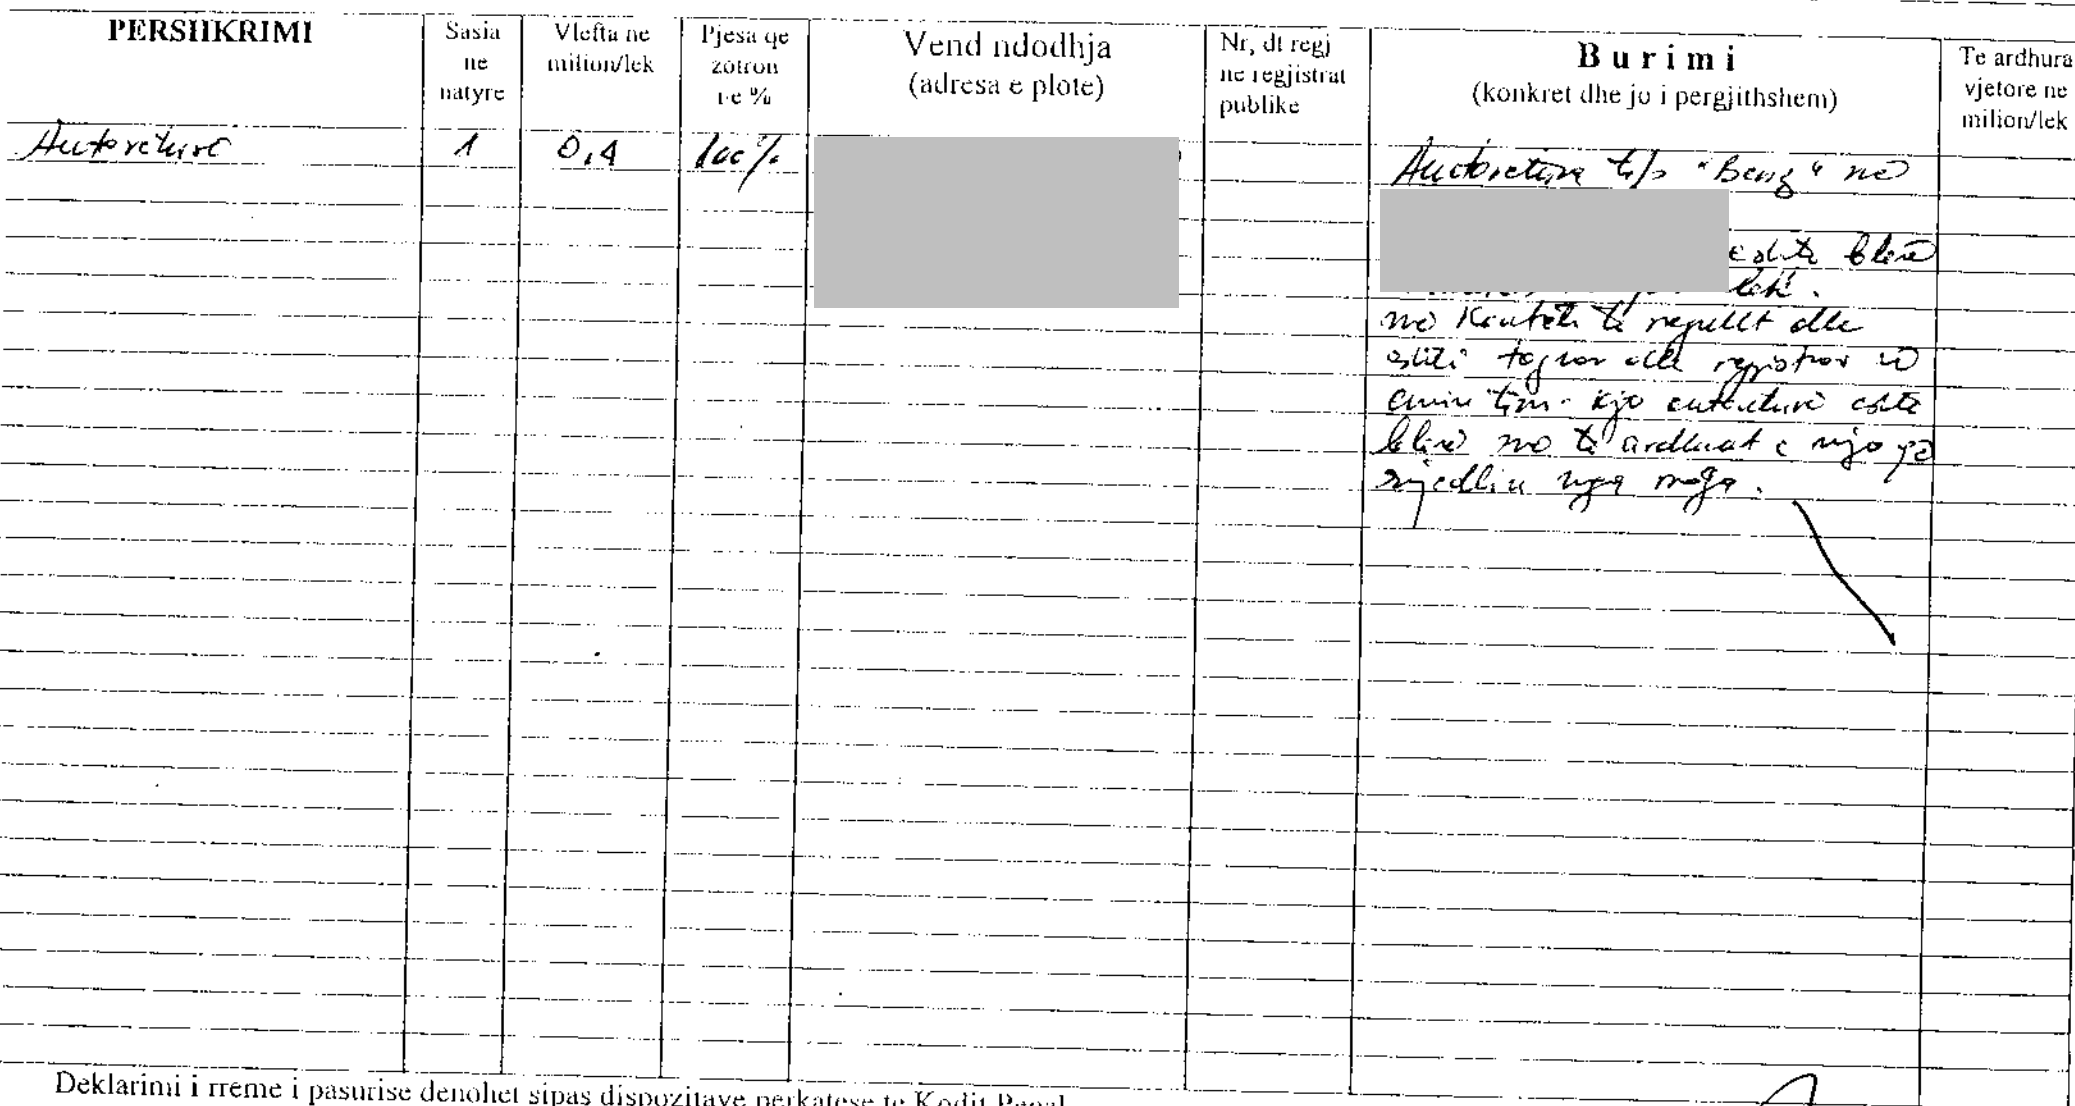 PERSHKRIMI
Sasia
ne
natyre
Vlefta ne
milion/lek
Pjesa qe
zotron
ne %
Vend ndodhja
(adresa e plote)
Nr, dt regj
ne regjistrat
publike
Burimi
(konkret dhe jo i pergjithshem)
Te ardhura
vjetore ne
milion/lek
Autoveturë 1 0,4 100%
Autovetura tip "Benz" në
eshte blerë
lekë.
me Kontratë të rregullt dhe
është dhe regjistruar në
emrin tim. Kjo autoveturë eshte
blerë me të ardhurat e mija që
rrjedhin nga paga.
Deklarimi i rreme i pasurise denohet sipas dispozitave perkatese te Kodit Penal